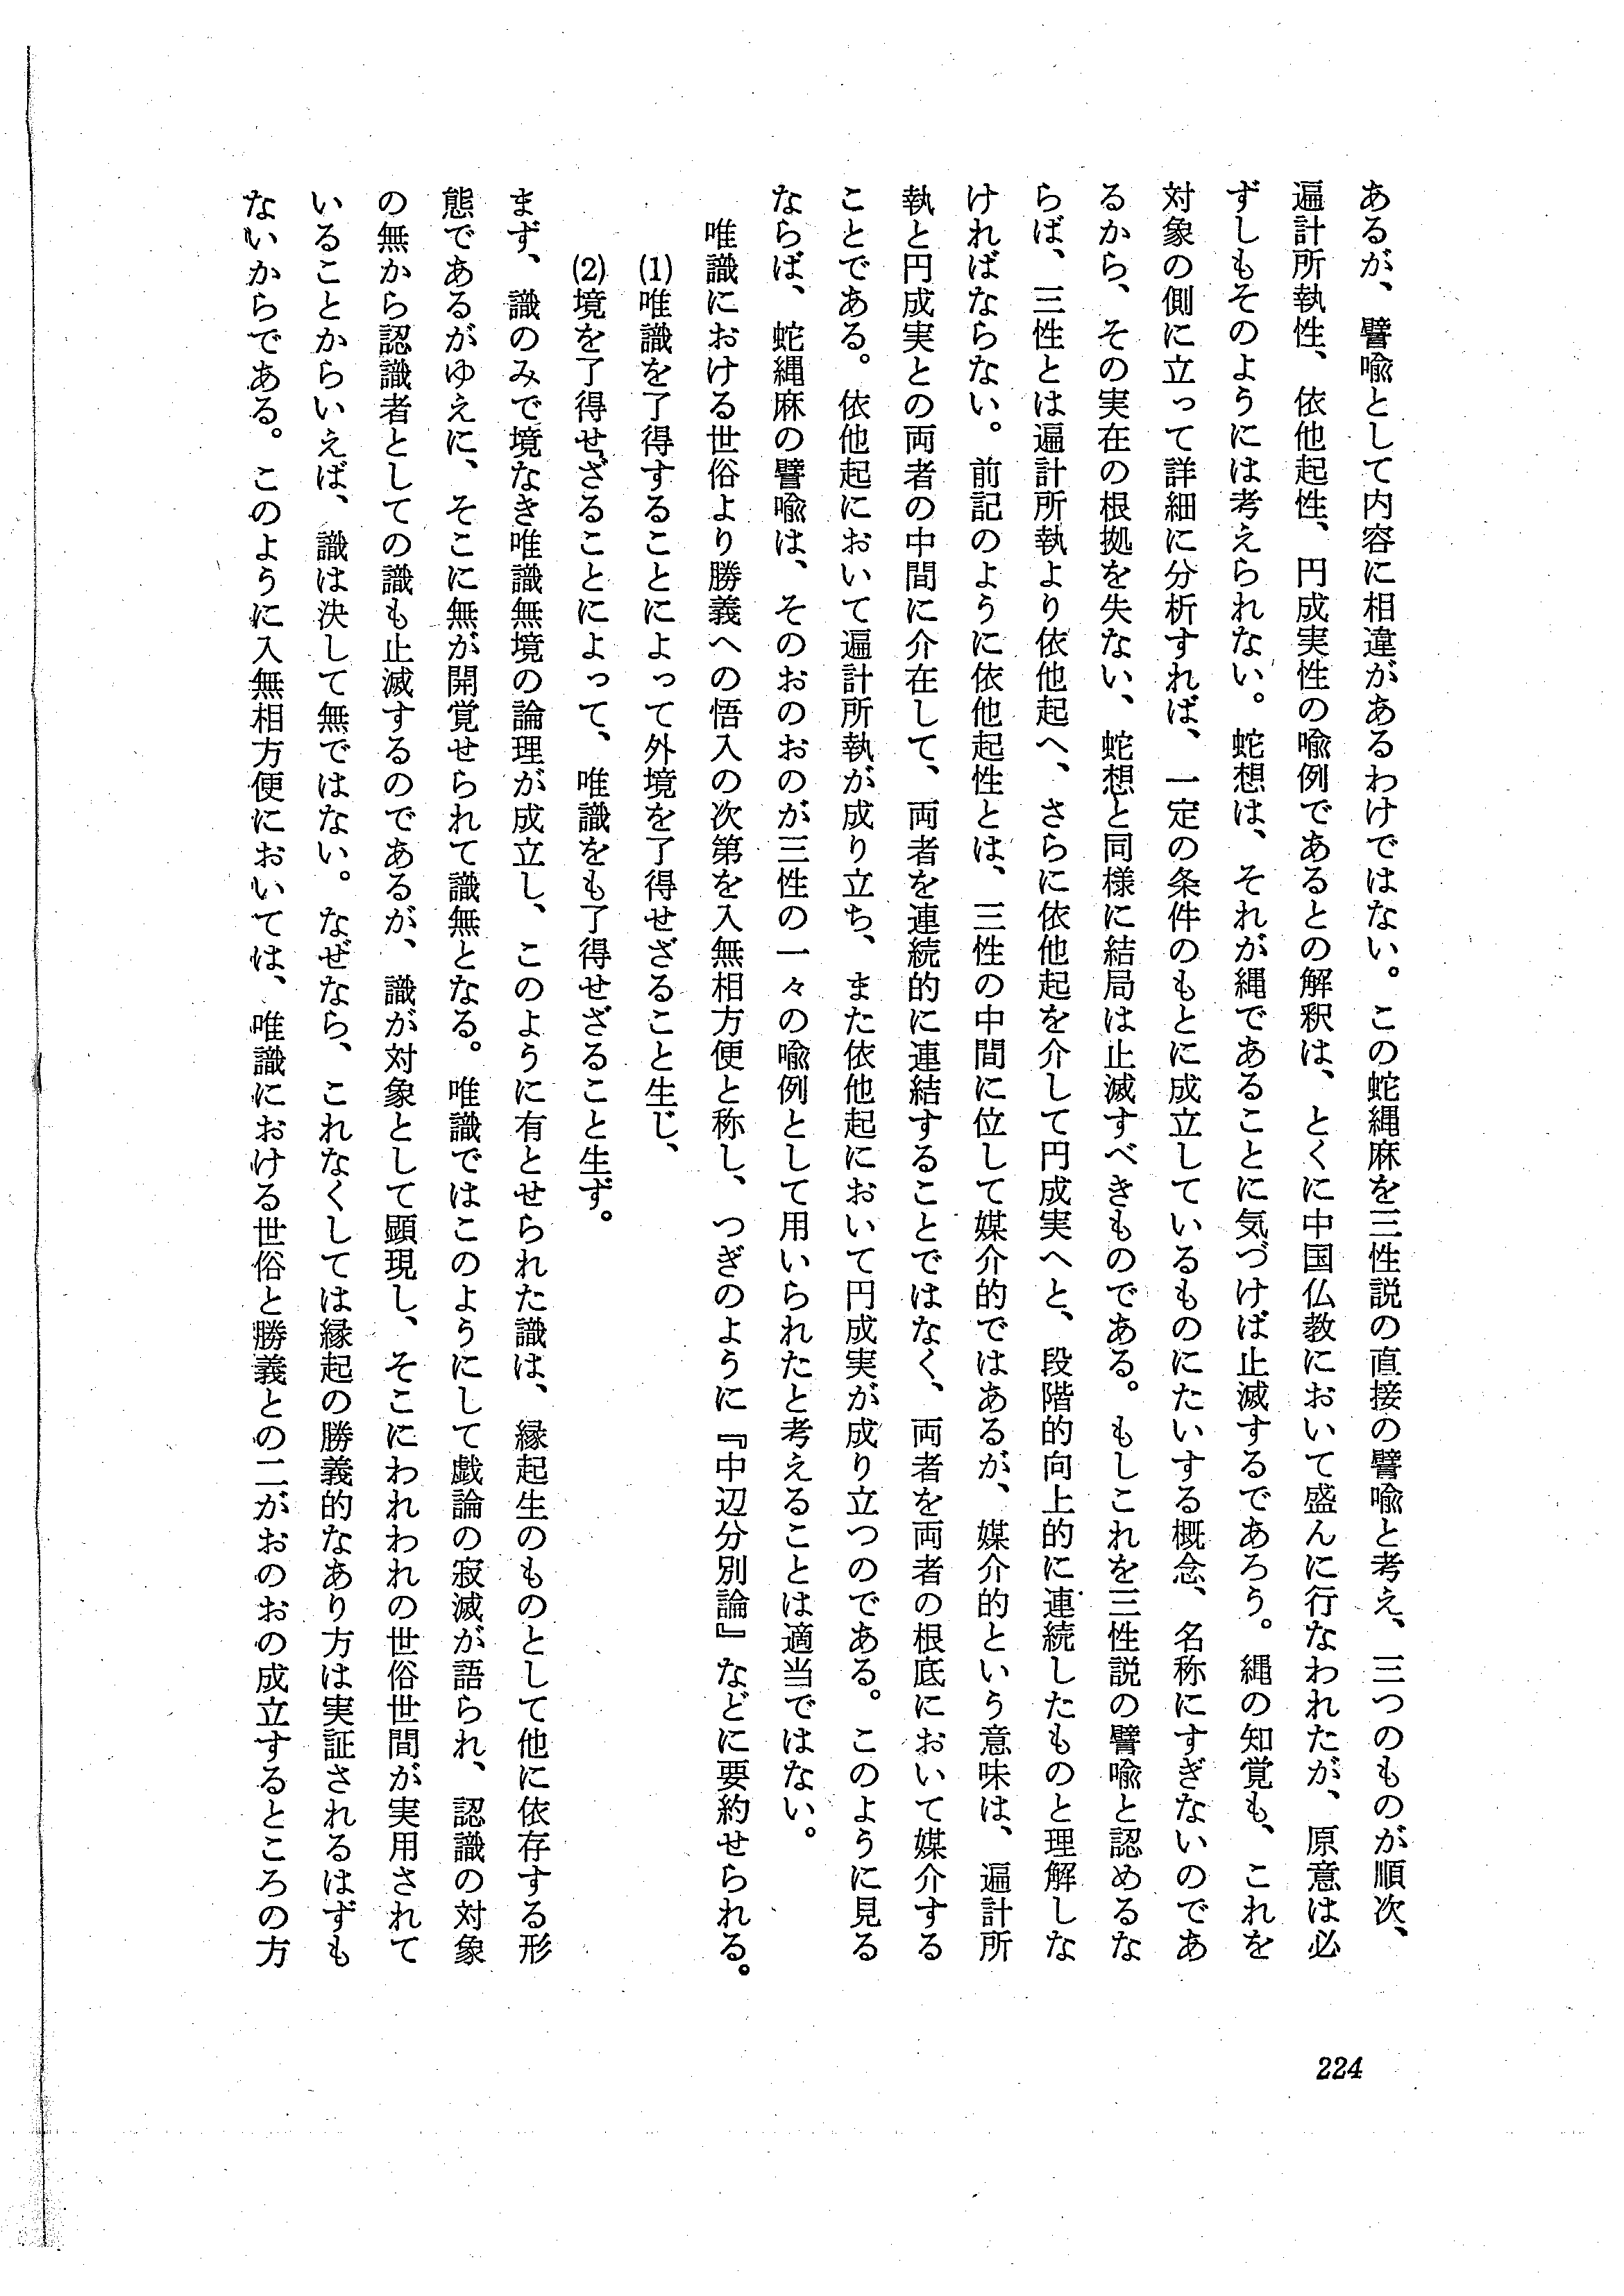 あるが、譬喩として内容に相違があるわけではない。この蛇縄麻を三性説の直接の譬喩と考え、三つのものが順次、
遍計所執性、依他起性、円成実性の喩例であるとの解釈は、とくに中国仏教において盛んに行なわれたが、原意は必
ずしもそのようには考えられない。蛇想は、それが縄であることに気づけば止滅するであろう。縄の知覚も、これを
対象の側に立って詳細に分析すれば、一定の条件のもとに成立しているものにたいする概念、名称にすぎないのであ
るから、その実在の根拠を失ない、蛇想と同様に結局は止滅すべきものである。もしこれを三性説の譬喩と認めるな
らば、三性とは遍計所執より依他起へ、さらに依他起を介して円成実へと、段階的向上的に連続したものと理解しな
ければならない。前記のように依他起性とは、三性の中間に位して媒介的ではあるが、媒介的という意味は、遍計所
執と円成実との両者の中間に介在して、両者を連続的に連結することではなく、両者を両者の根底において媒介する
ことである。依他起において遍計所執が成り立ち、また依他起において円成実が成り立つのである。このように見る
ならば、蛇縄麻の譬喩は、そのおのおのが三性の一々の喩例として用いられたと考えることは適当ではない。
唯識における世俗より勝義への悟入の次第を入無相方便と称し、つぎのように『中辺分別論』などに要約せられる。
(1)唯識を了得することによって外境を了得せざること生じ、
(2)境を了得せざることによって、唯識をも了得せざること生ず。
まず、識のみで境なき唯識無境の論理が成立し、このように有とせられた識は、縁起生のものとして他に依存する形
態であるがゆえに、そこに無が開覚せられて識無となる。唯識ではこのようにして戯論の寂滅が語られ、認識の対象
の無から認識者としての識も止滅するのであるが、識が対象として顕現し、そこにわれわれの世俗世間が実用されて
いることからいえば、識は決して無ではない。なぜなら、これなくしては縁起の勝義的なあり方は実証されるはずも
ないからである。このように入無相方便においては、唯識における世俗と勝義との二がおのおの成立するところの方
224